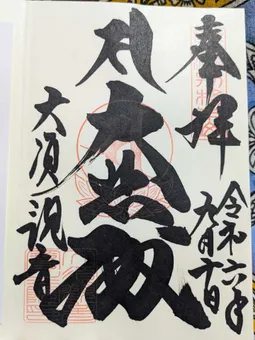 奉拝
令和六年
月日
大悲殿
大須観音